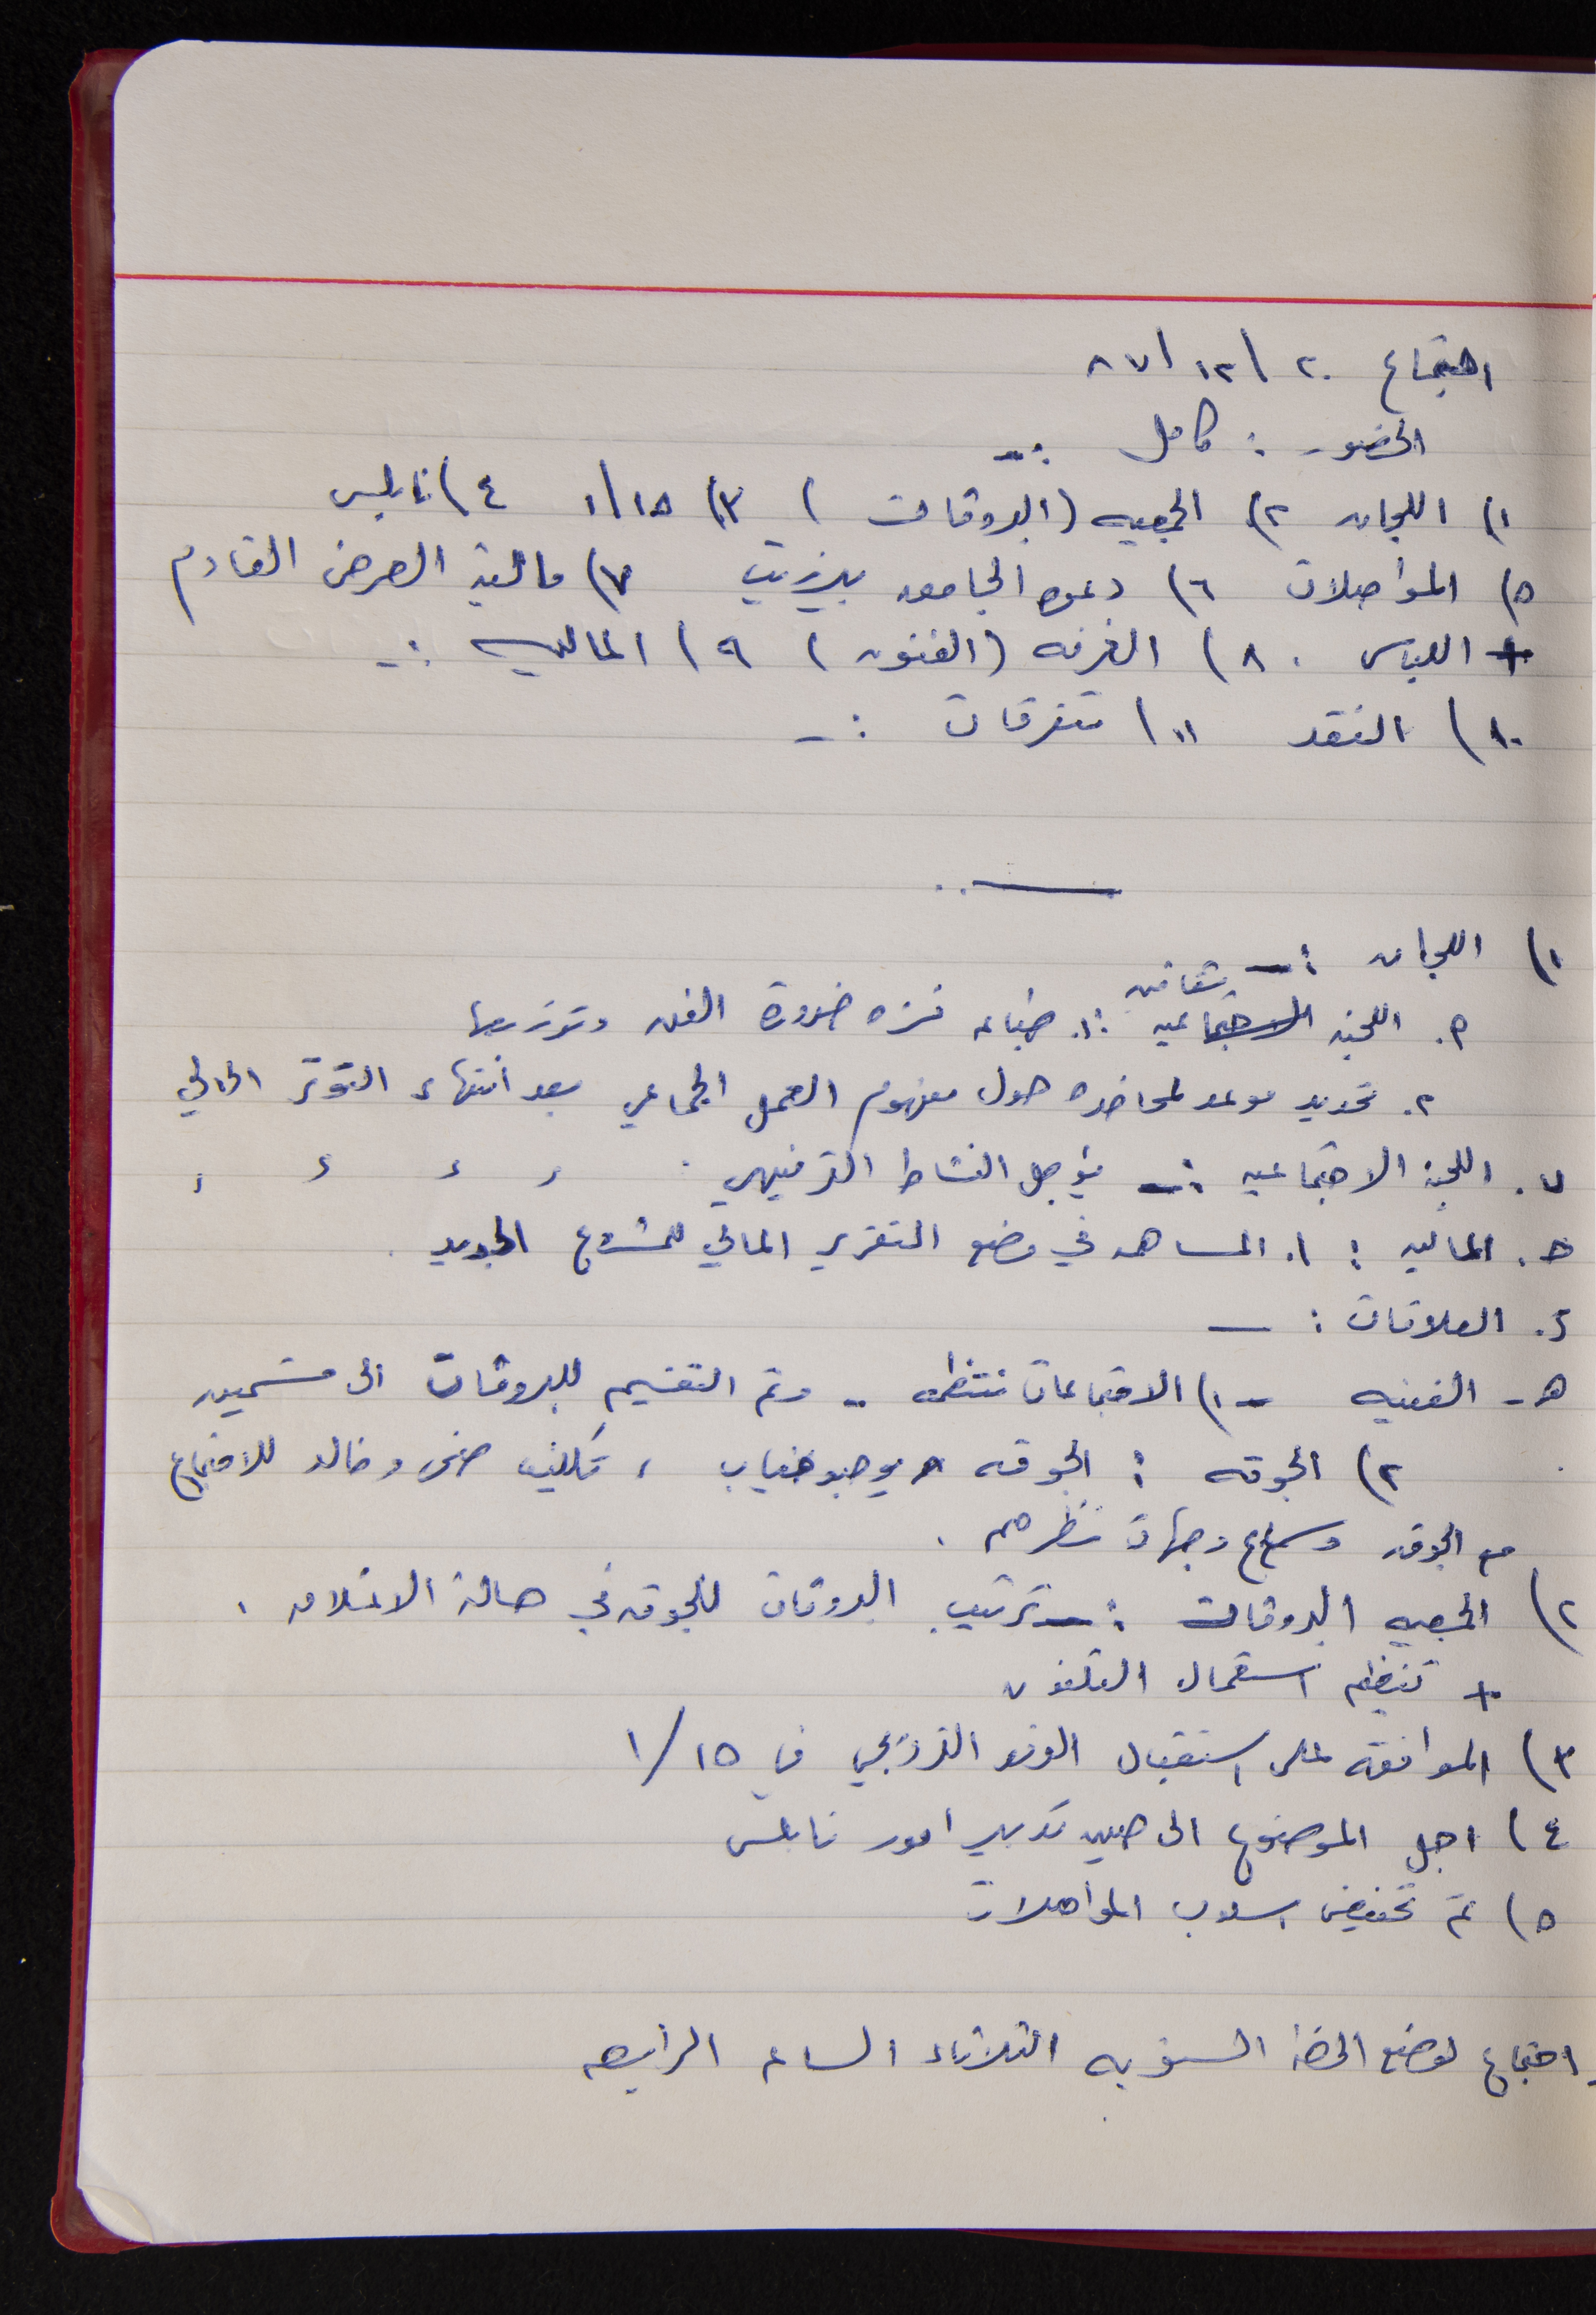 اجتماع ٢٠ / ١٢ / ٨٧
الحضور : كامل :ـ
١) اللجان ٢) الجمعيه (البروڤات) ٣) ١٥/١ ٤) نابلس
٥) المواصلات ٦) دعوه الجامعه بيرزيت ٧) مالية العرض القادم
+ اللباس . ٨) الغرفه (الفنون) ٩) الماليه :ـ
١٠) النقد ١١) متفرقات :ـ
١) اللجان :ـ
ثقافيه
أ. اللجنه الاجتماعيه :ـ ١. طباعه ضرورة الفن وتوزيعها
٢. تحديد موعد لمحاضره حول مفهوم العمل الجماعي بعد انتهاء التوتر الحالي
ب. اللجنة الاجتماعيه :ـ يؤجل النشاط الترفيهي . ، ، ، ،
جـ. الماليه : ١. المساهمه في وضع التقرير المالي للمشروع الجديد .
د. العلاقات : ــ
هـ ـ الفنيه ـ ١) الاجتماعات منتظمه .. وتم التقسيم للبروڤات الى قسمين
٢) الجوقه : الجوقه يوجد غياب ، تكليف وخالد للاجتماع
مع الجوقه وسماع وجهات نظرهم .
٢) الجمعيه البروڤات :ـ ترتيب البروڤات للجوقه في حالة الاغلاق .
+ تنظيم استعمال التلفون
٣) الموافقه على استقبال الوفد النرويجي في ١٥/١
٤) اجل الموضوع الى حين تدبير امور نابلس
٥) تم تخفيض اسلوب المواصلات
ـ اجتماع لوضع الخطة السنويه الثلاثاء الساعه الرابعه